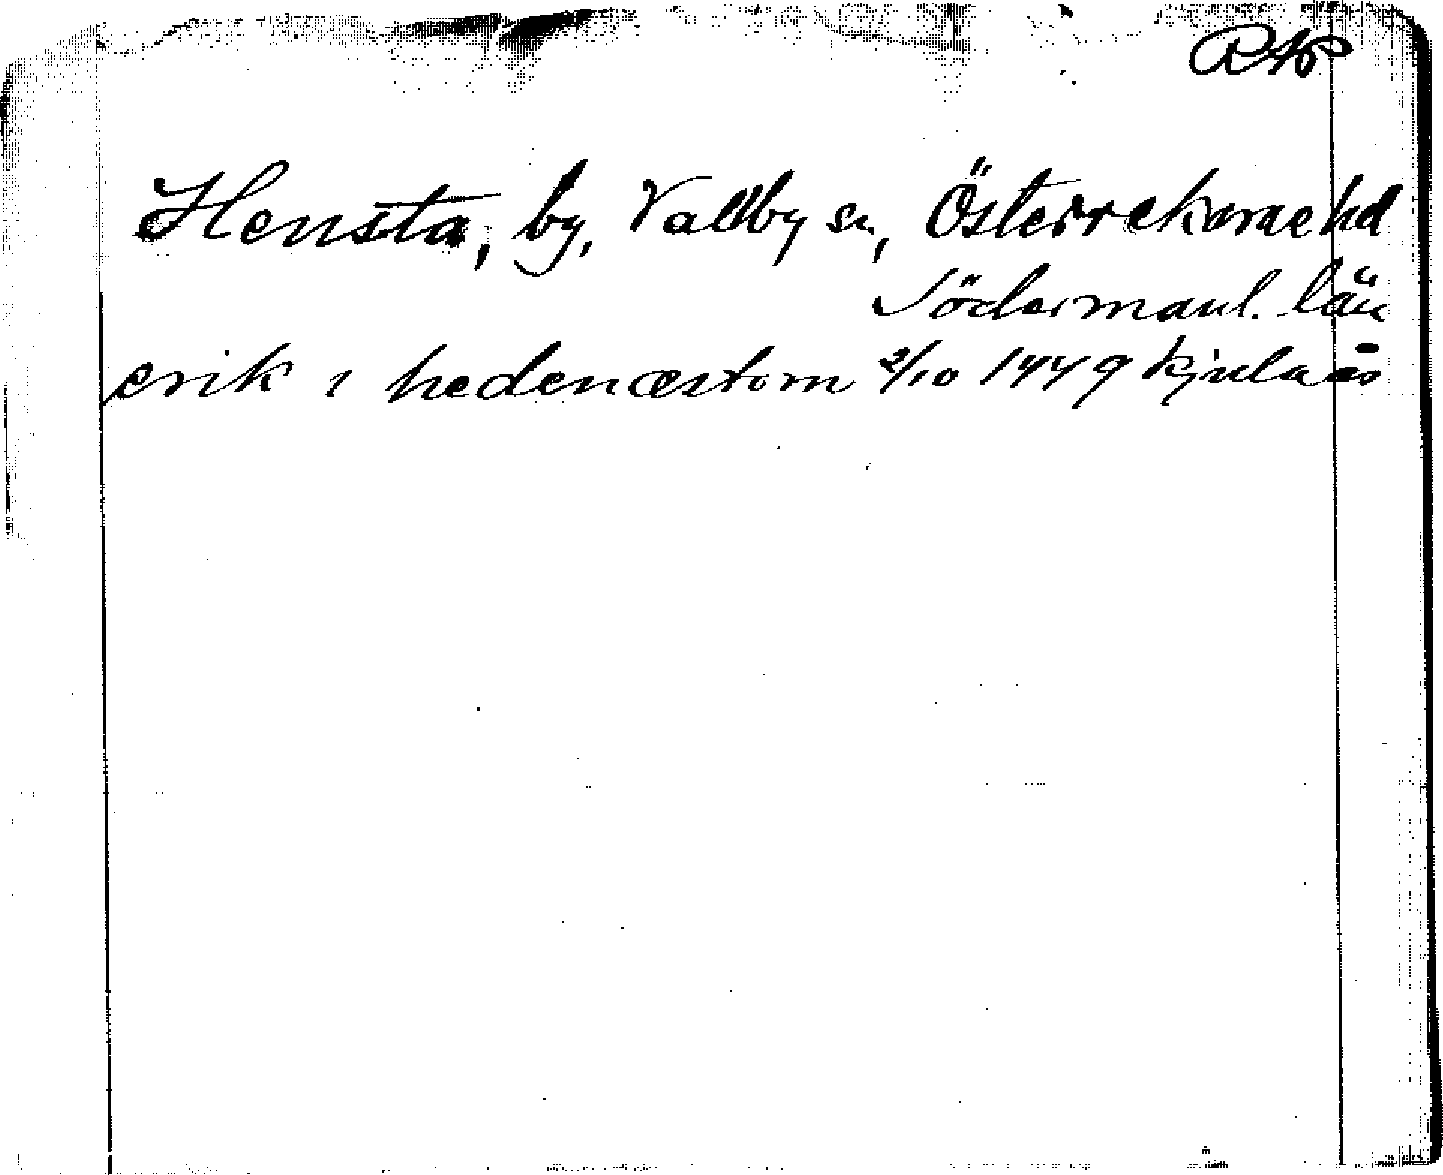 RAP
Hensta, by, Vallby sn, Österrekarne hd
Södermanl. län
erik i hedenæstom 2/10 1449 kjulaås